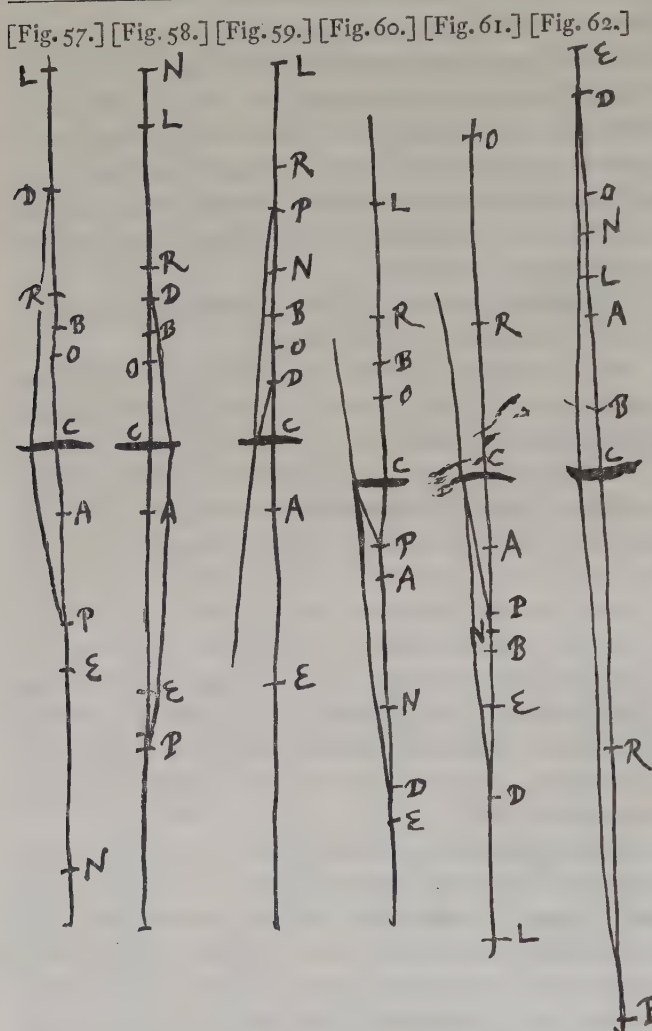 [Fig. 57.] [Fig. 58.] [Fig. 59.] [Fig. 60.] [Fig. 61.] [Fig. 62.]
L
D
R
B
O
C
A
P
E
N
N
L
R
D
B
O
C
A
E
P
L
R
P
N
B
O
D
C
A
E
L
R
B
O
C
P
A
N
D
E
O
R
C
A
P
N
B
E
D
L
E
D
O
N
L
A
B
C
R
P